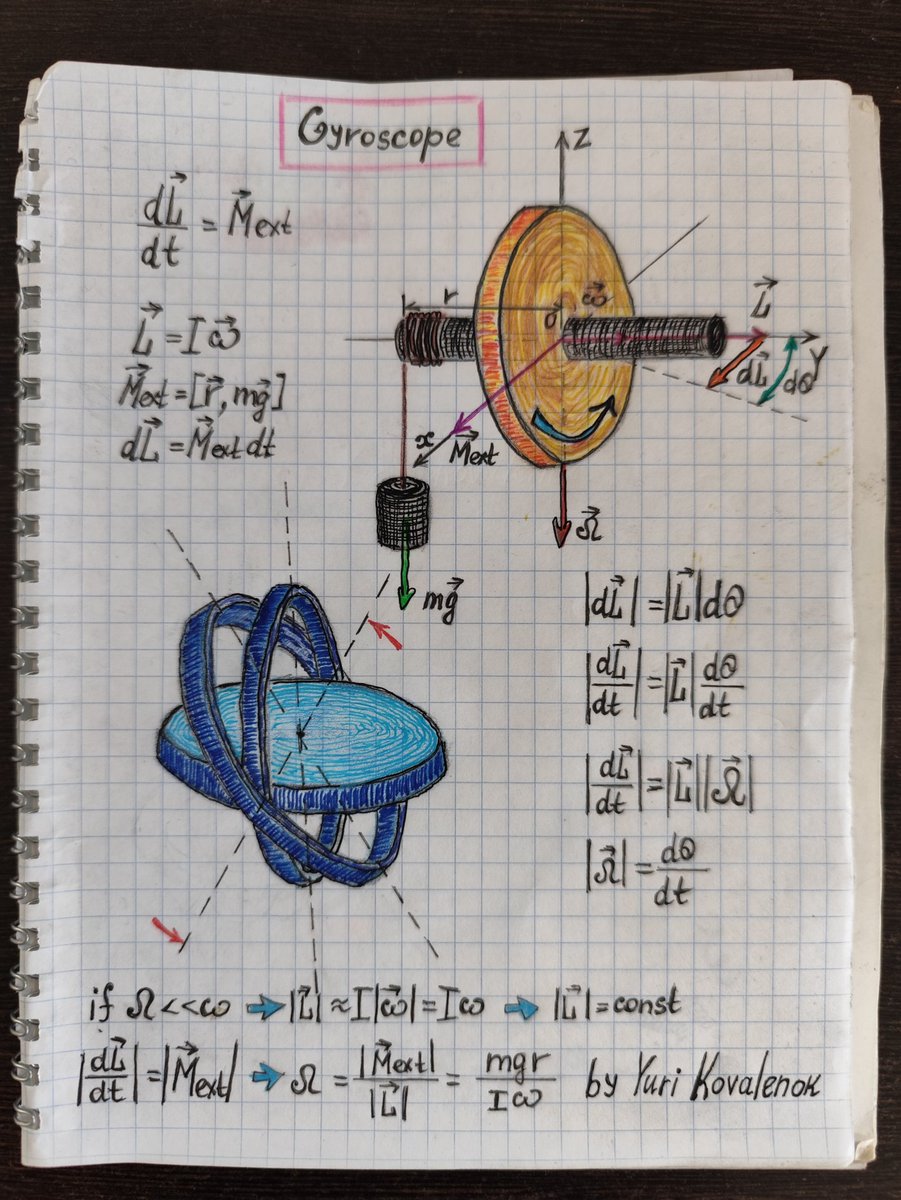 Gyroscope
dL⃗/dt = M⃗ext
L⃗ = Iω⃗
M⃗ext = [r⃗, mg⃗]
dL⃗ = M⃗ext dt
Z
r
O
ω⃗
L⃗
Y
dL⃗
dΘ
x
M⃗ext
Ω⃗
mg⃗
|dL⃗| = |L⃗|dΘ
|dL⃗/dt| = |L⃗| dΘ/dt
|dL⃗/dt| = |L⃗||Ω⃗|
|Ω⃗| = dΘ/dt
if Ω << ω ➡ |L⃗| ≈ I|ω⃗| = Iω ➡ |L⃗| = const
|dL⃗/dt| = |M⃗ext| ➡ Ω = |M⃗ext|/|L⃗| = mgr/Iω by Yuri Kovalenok